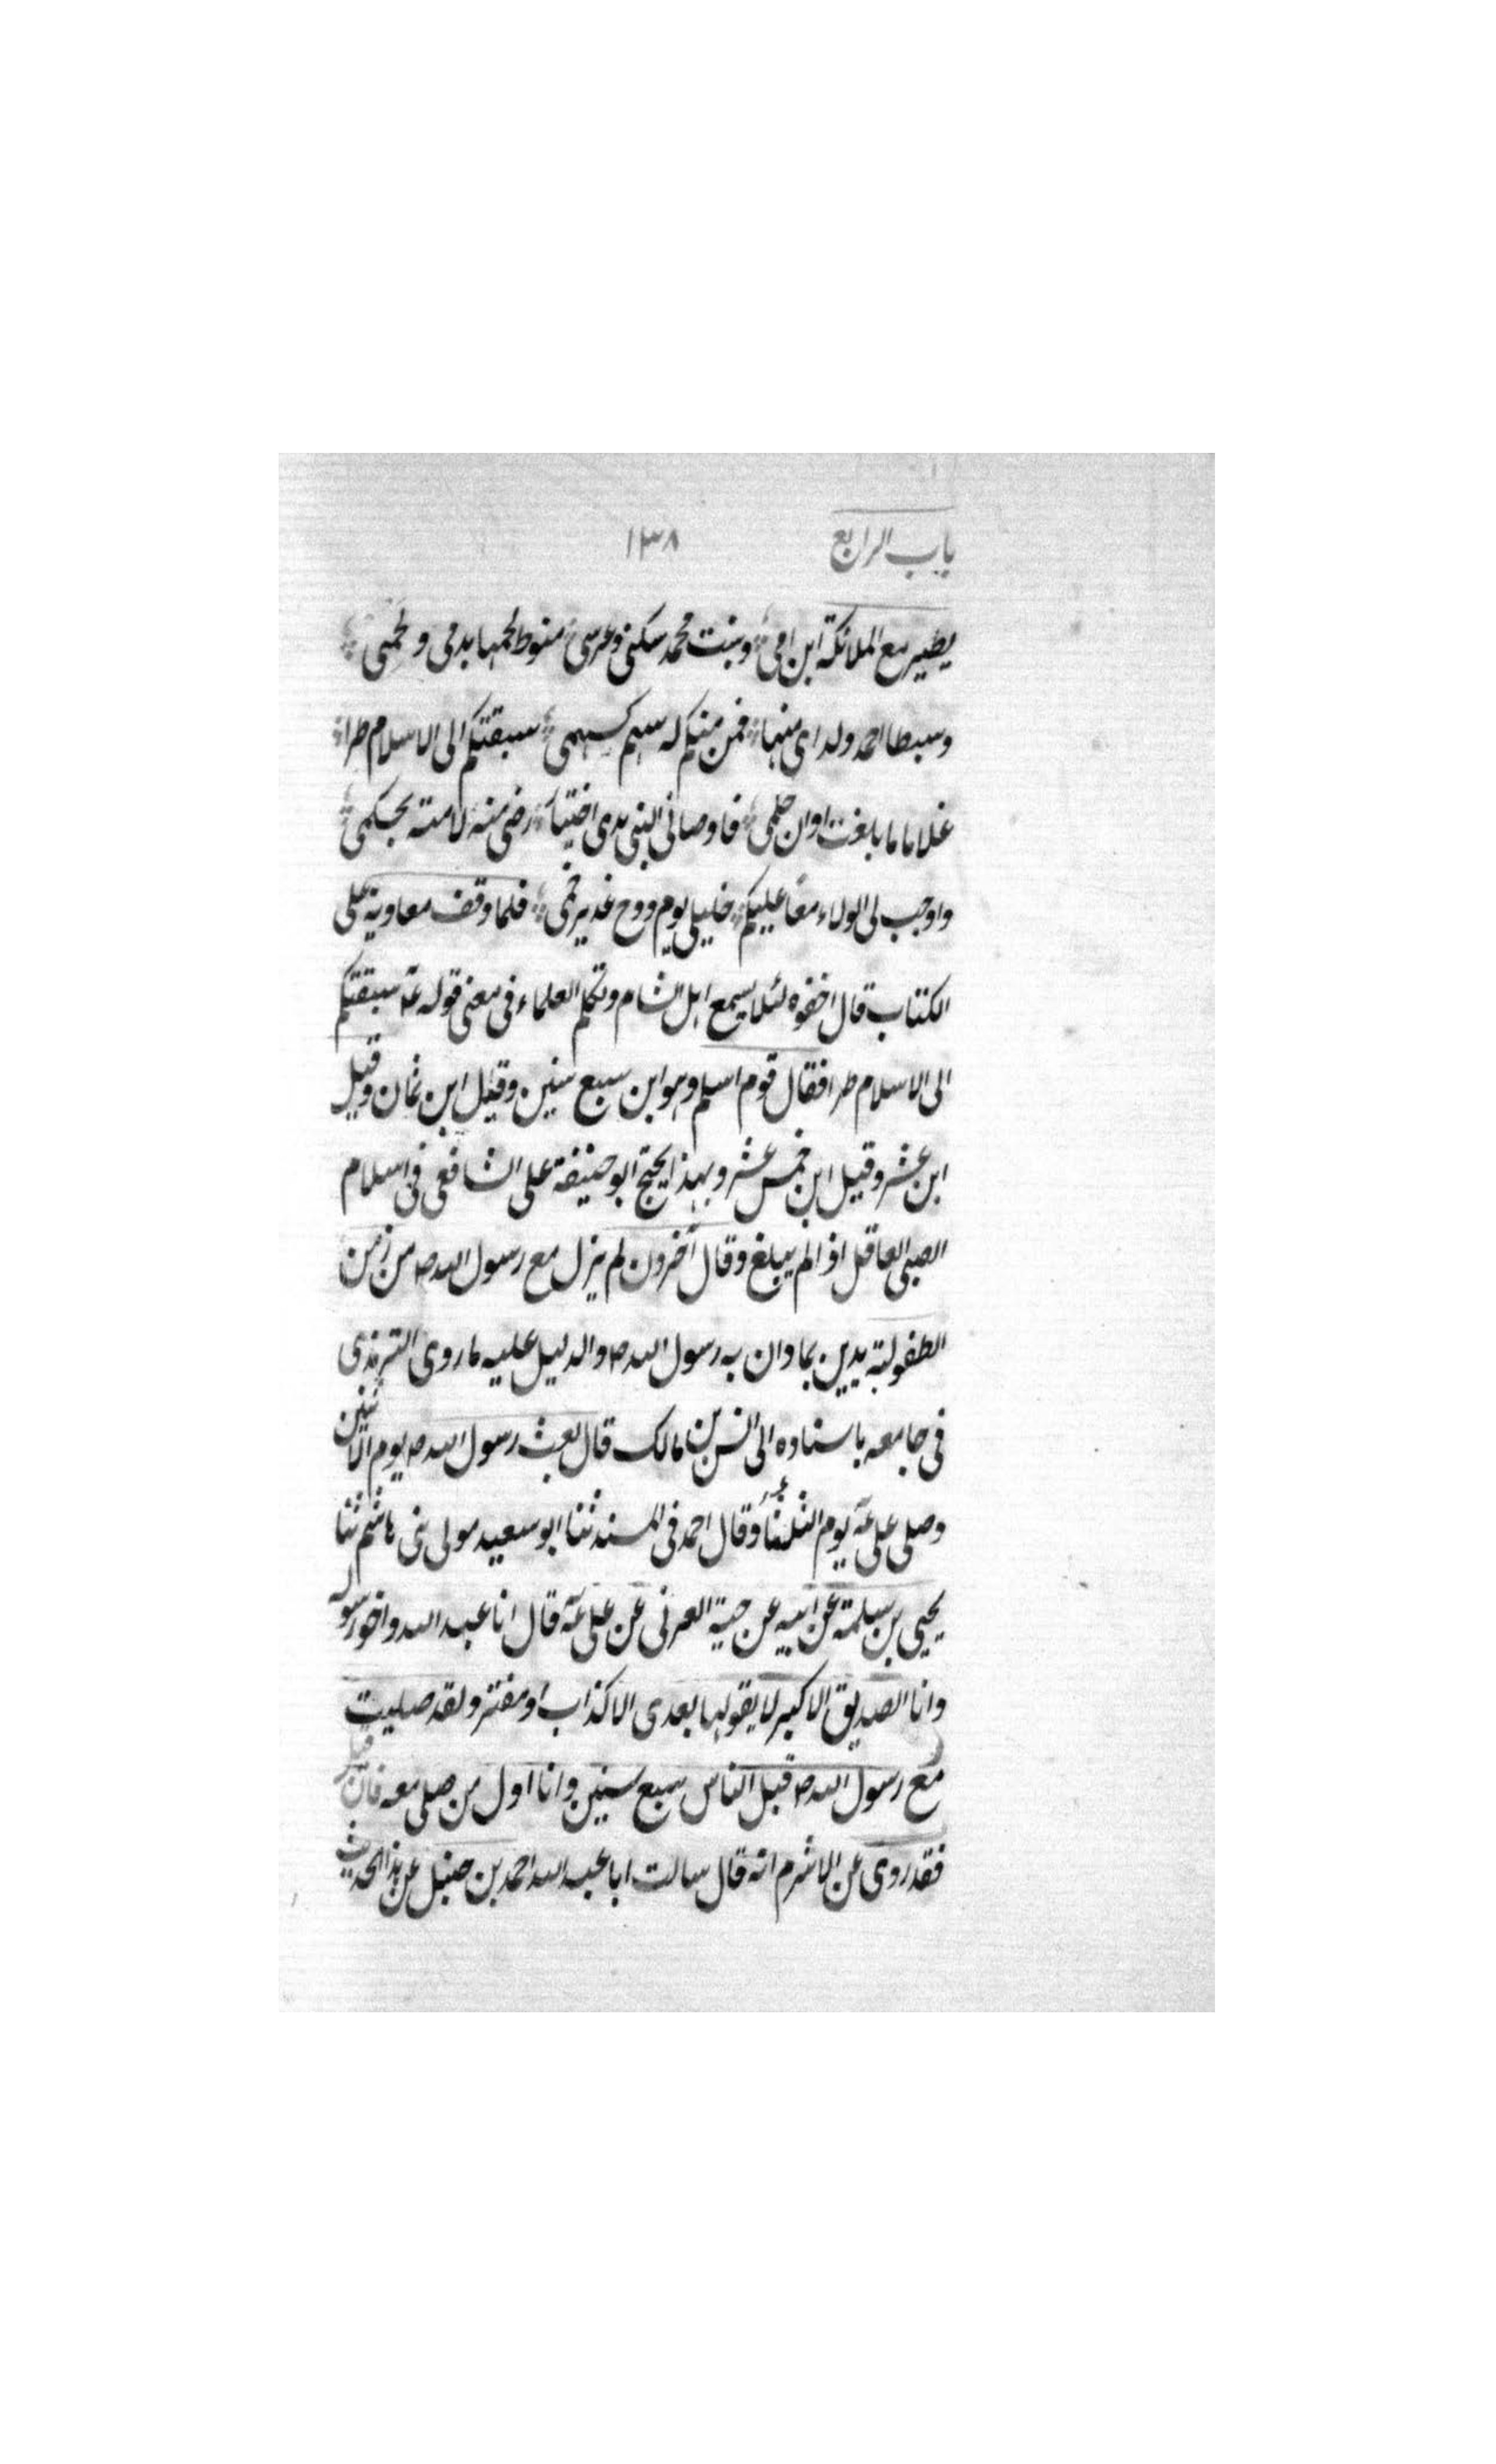 باب الرابع ١٣٨
يطير مع الملائكة ابن امى وبنت محمد سكنى وعرسى منوط لحمها بدمى ولحمى
وسبطا احمد ولداى منها فمن منكم له سهم كسهمى سبقتكم الى الاسلام طرا
غلاما ما بلغت اوان حلمى فاوصانى النبى لدى اختيار رضى منه لامته بحكمى
واوجب لى الولاء معا عليكم خليلى يوم دوح غدير خمى فلما وقف معاوية على
الكتاب قال اخفوه لئلا يسمع اهل الشام وتكلم العلماء فى معنى قوله عه سبقتكم
الى الاسلام طرا فقال قوم اسلم وهو ابن سبع سنين وقيل ابن ثمان وقيل
ابن عشر وقيل ابن خمس عشر وبهذا يحتج ابو حنيفة على الشافعى فى اسلام
الصبى العاقل اذا لم يبلغ وقال آخرون لم يزل مع رسول الله ص من زمن
الطفولية يدين بما دان به رسول الله ص والدليل عليه ما روى الترمذى
فى جامعه باسناده الى انس بن مالك قال بعث رسول الله ص يوم الاثنين
وصلى على عه يوم الثلثاء وقال احمد فى المسند ثنا ابو سعيد مولى بنى هاشم ثنا
يحيى بن سلمة عن ابيه عن حبة العرنى عن على عه قال انا عبد الله واخو رسوله
وانا الصديق الاكبر لا يقولها بعدى الا كذاب او مفتر ولقد صليت
مع رسول الله ص قبل الناس سبع سنين وانا اول من صلى معه فان قيل
فقد روى عن الاشرم انه قال سالت ابا عبد الله احمد بن حنبل عن هذا الحديث